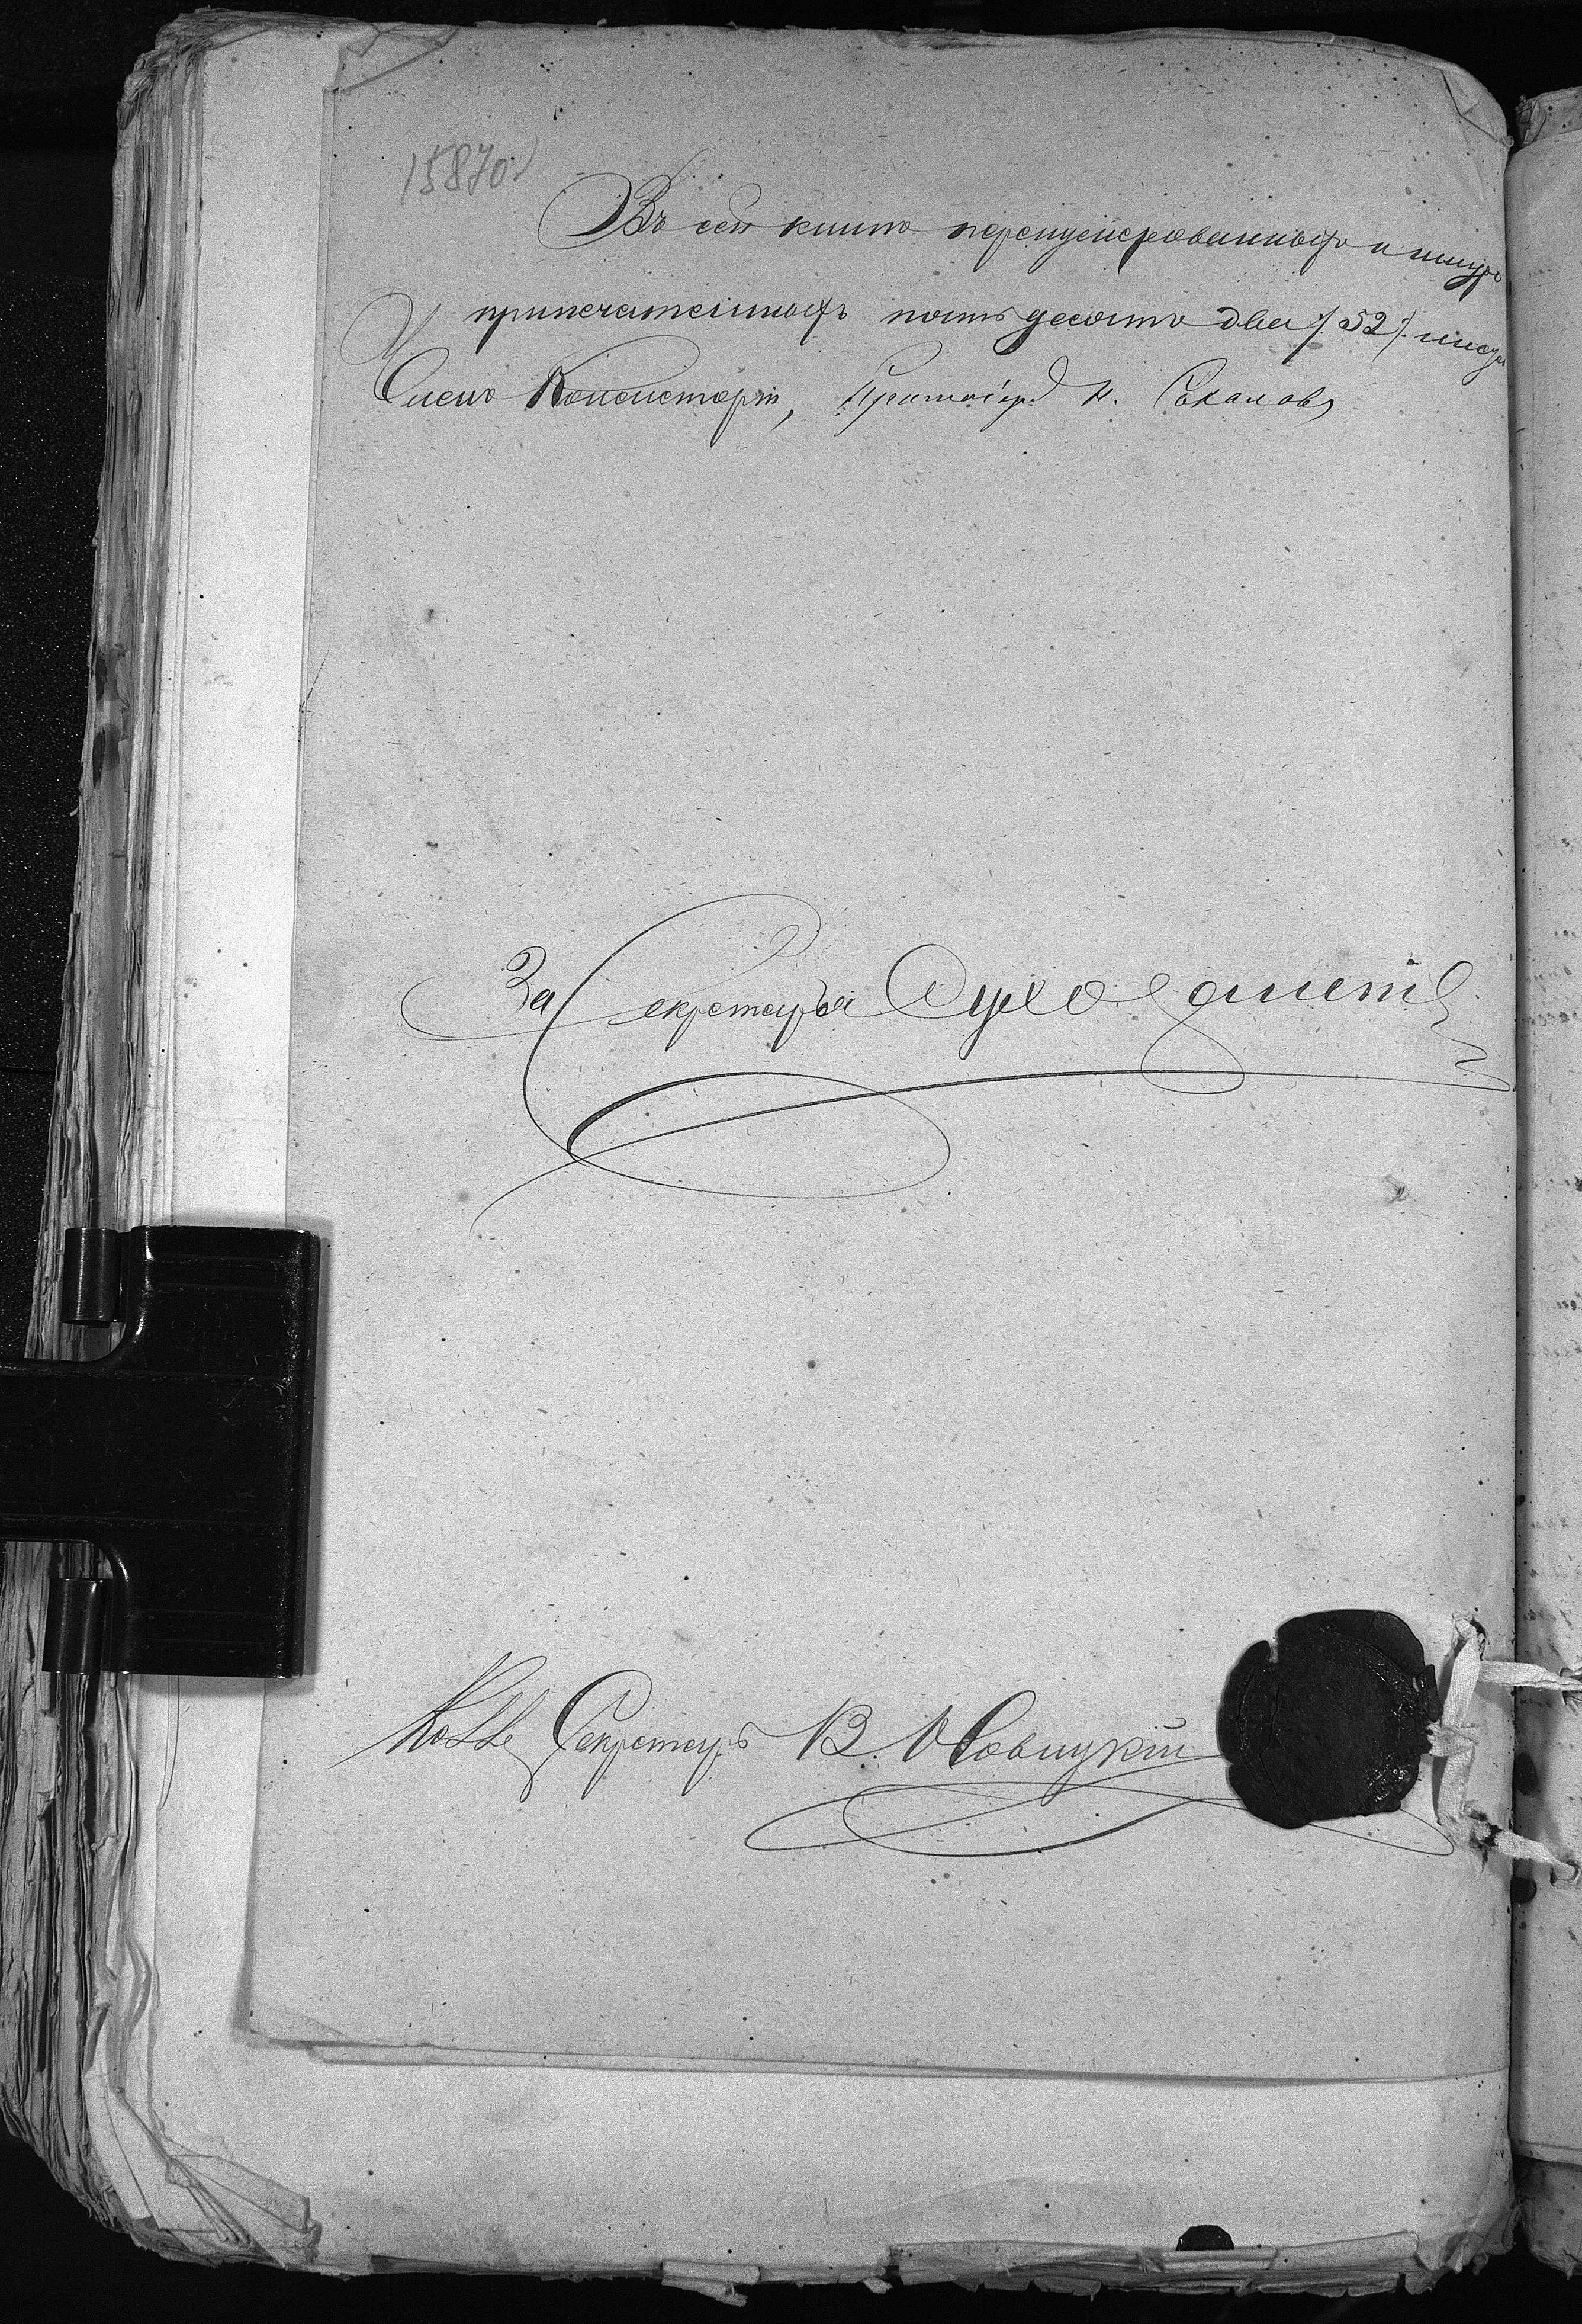 1587об
Въ сей книгѣ перенумерованныхъ и шнур
припечатанныхъ пятьдесятъ два /52/. листа
Членъ Консисторіи, Протоіер. Н. Соколовъ
За Секретаря
Колле. Секретарь В. Новицкій